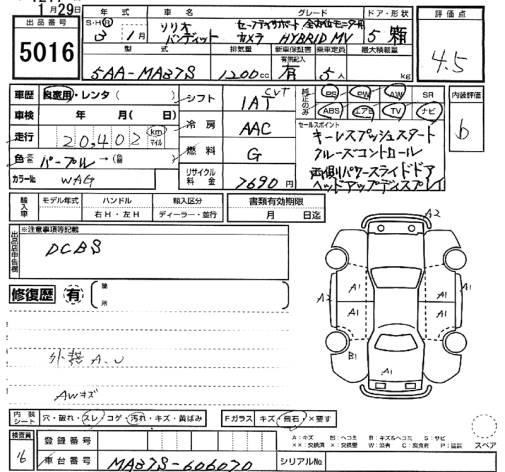 1月29日
出品番号
5016
年式 車名 グレード ドア・形状
S・H・R 3年 1月
ソリオ バンディット
セーフティサポート 全方位モニター用カメラ HYBRID MV
5 箱
型式 排気量 新車保証書 乗車定員 最大積載量
有 記入
5AA-MA37S 1200cc 有 5人 kg
評価点
4.5
車歴 自家用・レンタ( )
シフト CVT IAT
純正のみ PS PW AW SR
ABS エアB TV ナビ
内装評価
b
車検 年 月( 日)
冷房 AAC
セールスポイント
キーレスプッシュスタート
クルーズコントロール
両側パワースライドドア
ヘッドアップディスプレイ
走行 20,402 km マイル
燃料 G
色 パープル→(
カラーNo. WAG
リサイクル料金 7690円
輸入車 モデル年式 ハンドル 右H・左H 輸入区分 ディーラー・並行
書類有効期限 月 日迄
出品店申告欄 ※注意事項等記載
DCBS
修復歴 有 箇所
A2
A2 A1 A1
A1 A1
B1
A1
外装 A.U
AWキズ
内装シート 穴・破れ・スレ・コゲ・汚れ・キズ・黄ばみ
Fガラス キズ・飛石・×要す
A:キズ B:ヘコミ B:キズ&ヘコミ S:サビ
スペア
検査員 16
登録番号
車台番号 MA37S-606070
シリアルNo.